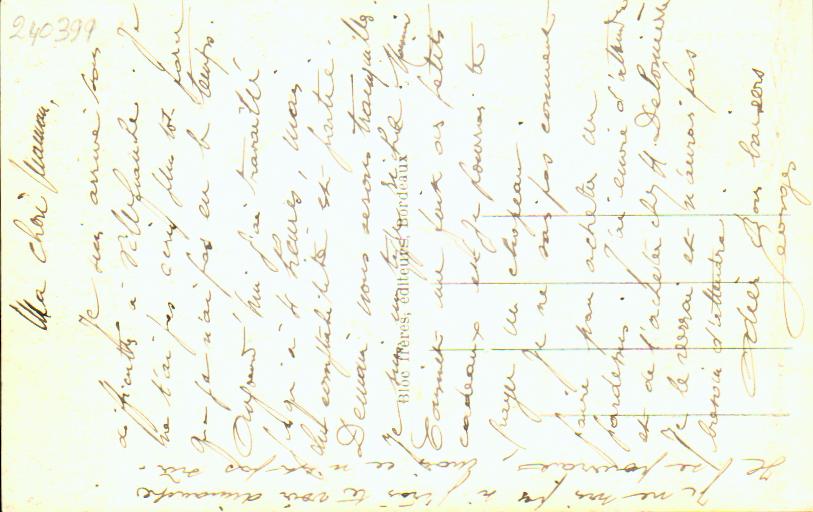 240399
Ma chère Maman,
Je suis arrivé sans
difficultés à Villefranche. Je
ne t'ai pas écrit plus tôt parce
que je n'ai pas eu le temps.
Aujourd'hui j'ai travaillé
jusqu'à 4 heures, mais
la comptabilité est partie.
Demain nous serons tranquilles.
Je suis
me fait des petits
cadeaux et je pourrai te
payer un chapeau.
Je ne sais pas comment
faire pour acheter un
pardessus. J'ai envie d'attendre
et de l'acheter chez M.
Je le verrai et n'aurai pas
besoin d'attendre
Bons baisers
Georges
Je ne sais pas si j'irai te voir dimanche
Je pourrais mais ce n'est pas sûr.
Bloc frères, éditeurs, Bordeaux